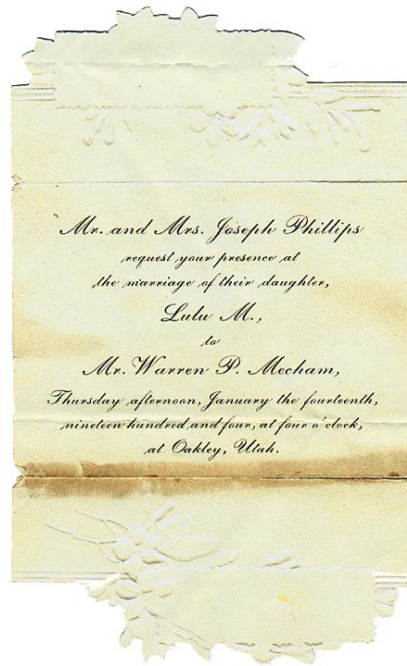 Mr. and Mrs. Joseph Phillips
request your presence at
the marriage of their daughter,
Lulu M.,
to
Mr. Warren P. Mecham,
Thursday afternoon, January the fourteenth,
nineteen hundred and four, at four o'clock,
at Oakley, Utah.